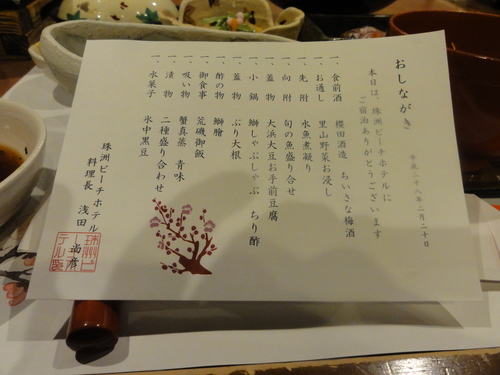 おしながき
平成二十八年二月二十日
本日は、珠洲ビーチホテルに
ご宿泊ありがとうございます
一、食前酒 櫻田酒造 ちいさな梅酒
一、お通し 里山野菜お浸し
一、先附 水魚煮凝り
一、向附 旬の魚盛り合せ
一、蓋物 大浜大豆お手前豆腐
一、小鍋 鰤しゃぶしゃぶ ちり酢
一、蓋物 ぶり大根
一、酢の物 鰤膾
一、御食事 荒磯御飯
一、吸い物 蟹真蒸 青味
一、漬物 二種盛り合わせ
一、水菓子 氷中黒豆
珠洲ビーチホテル
料理長 浅田